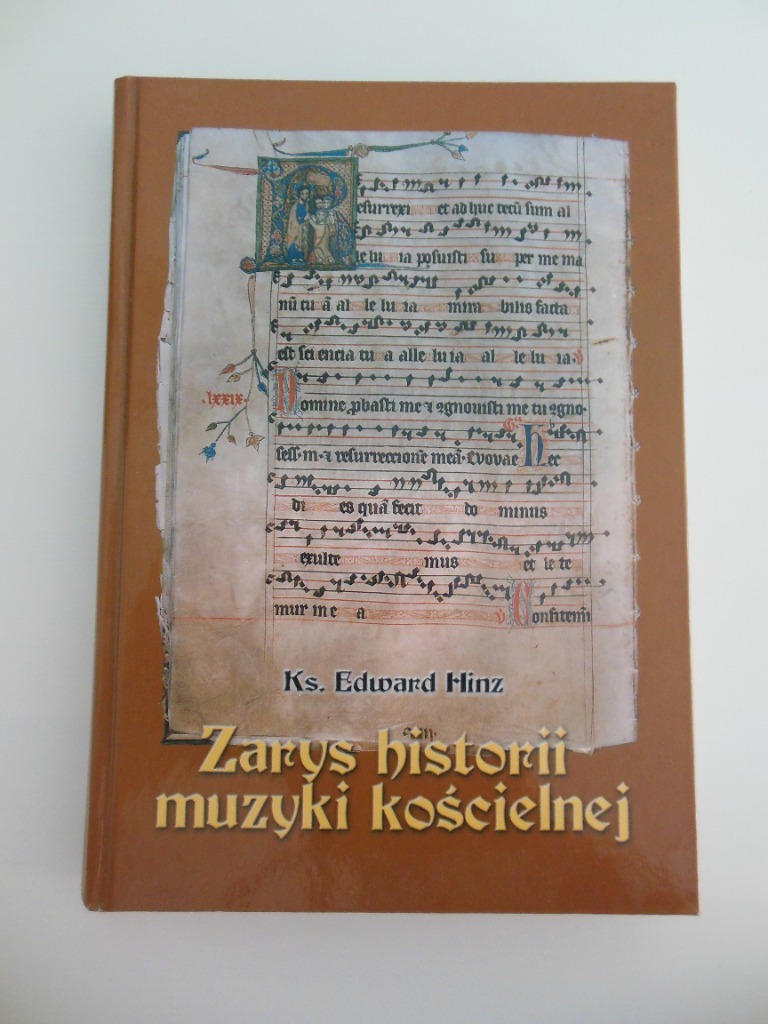 esurrexi et adhuc tecū sum al
le lu ia posuisti su per me ma
nū tu ā al le lu ia mira bilis facta
est sci encia tu a alle lu ia al le lu ia
lxxix
Domine ꝓbasti me ⁊ ꝯgnouisti me tu ꝯgno-
resurreccionē meā Evovae hec
di es quā fecit do minus
exulte mus et le te
mur in e a Confitemī
Ks. Edward Hinz
Zarys historii
muzyki kościelnej